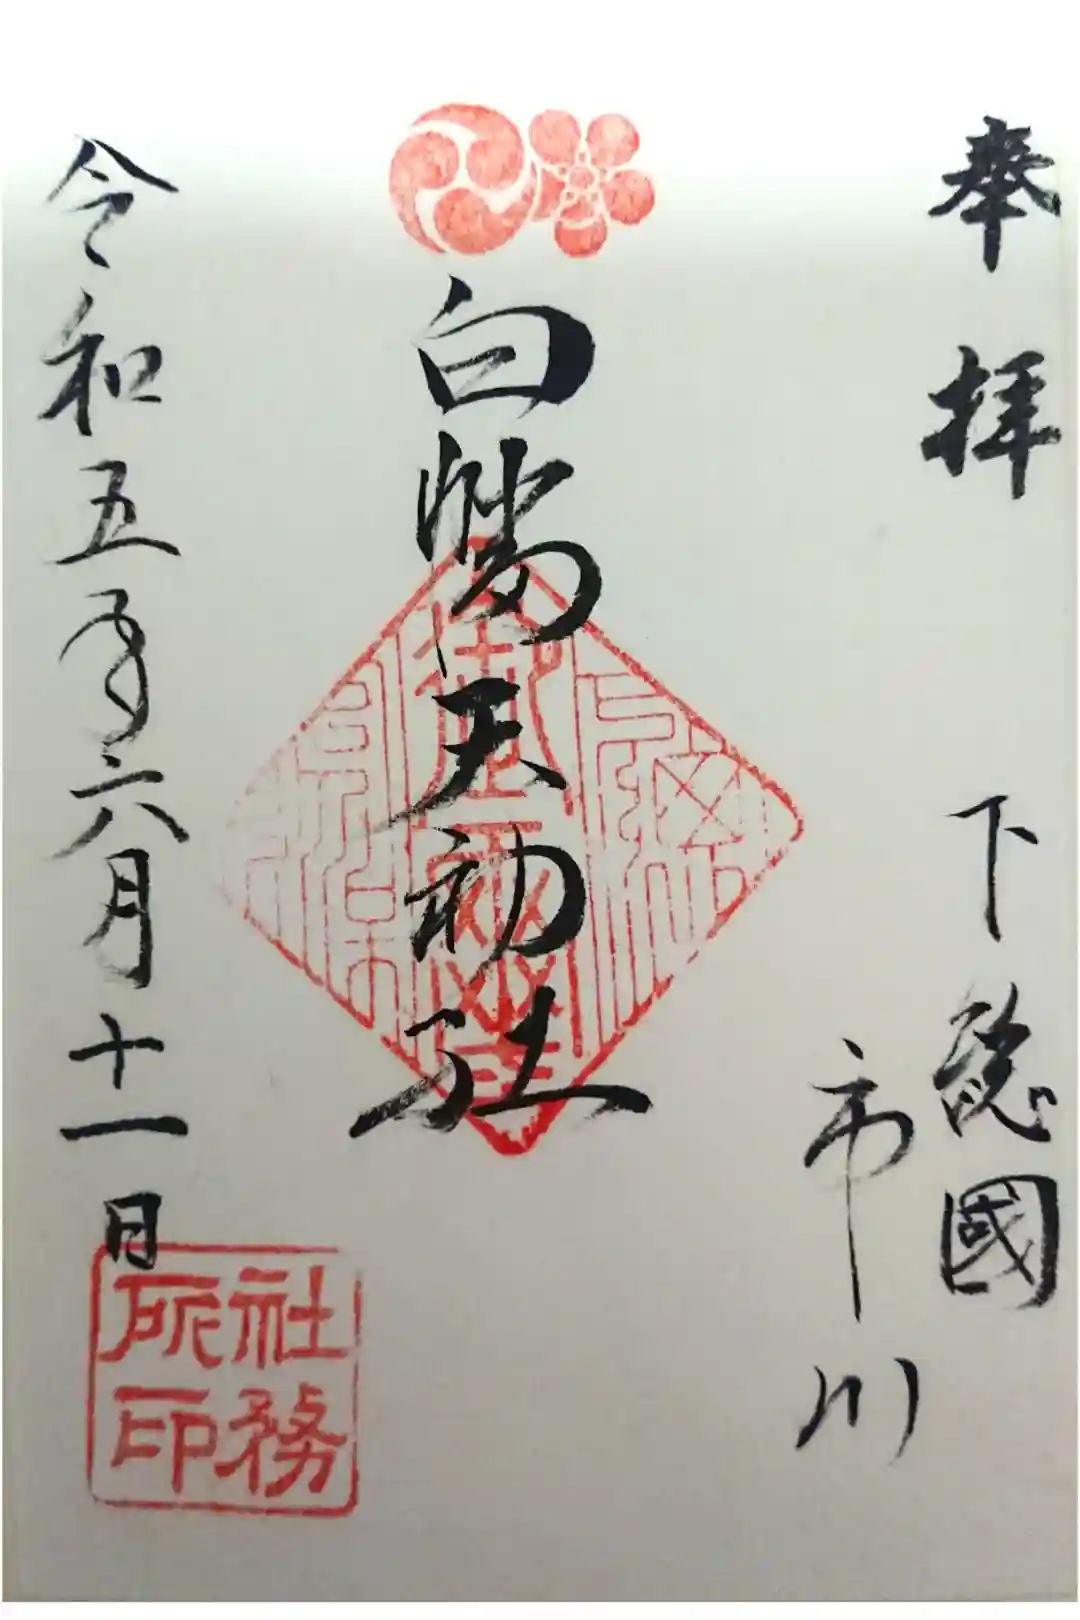 奉拝
下総國
市川
白幡天神社
令和五年六月十一日
社務所印